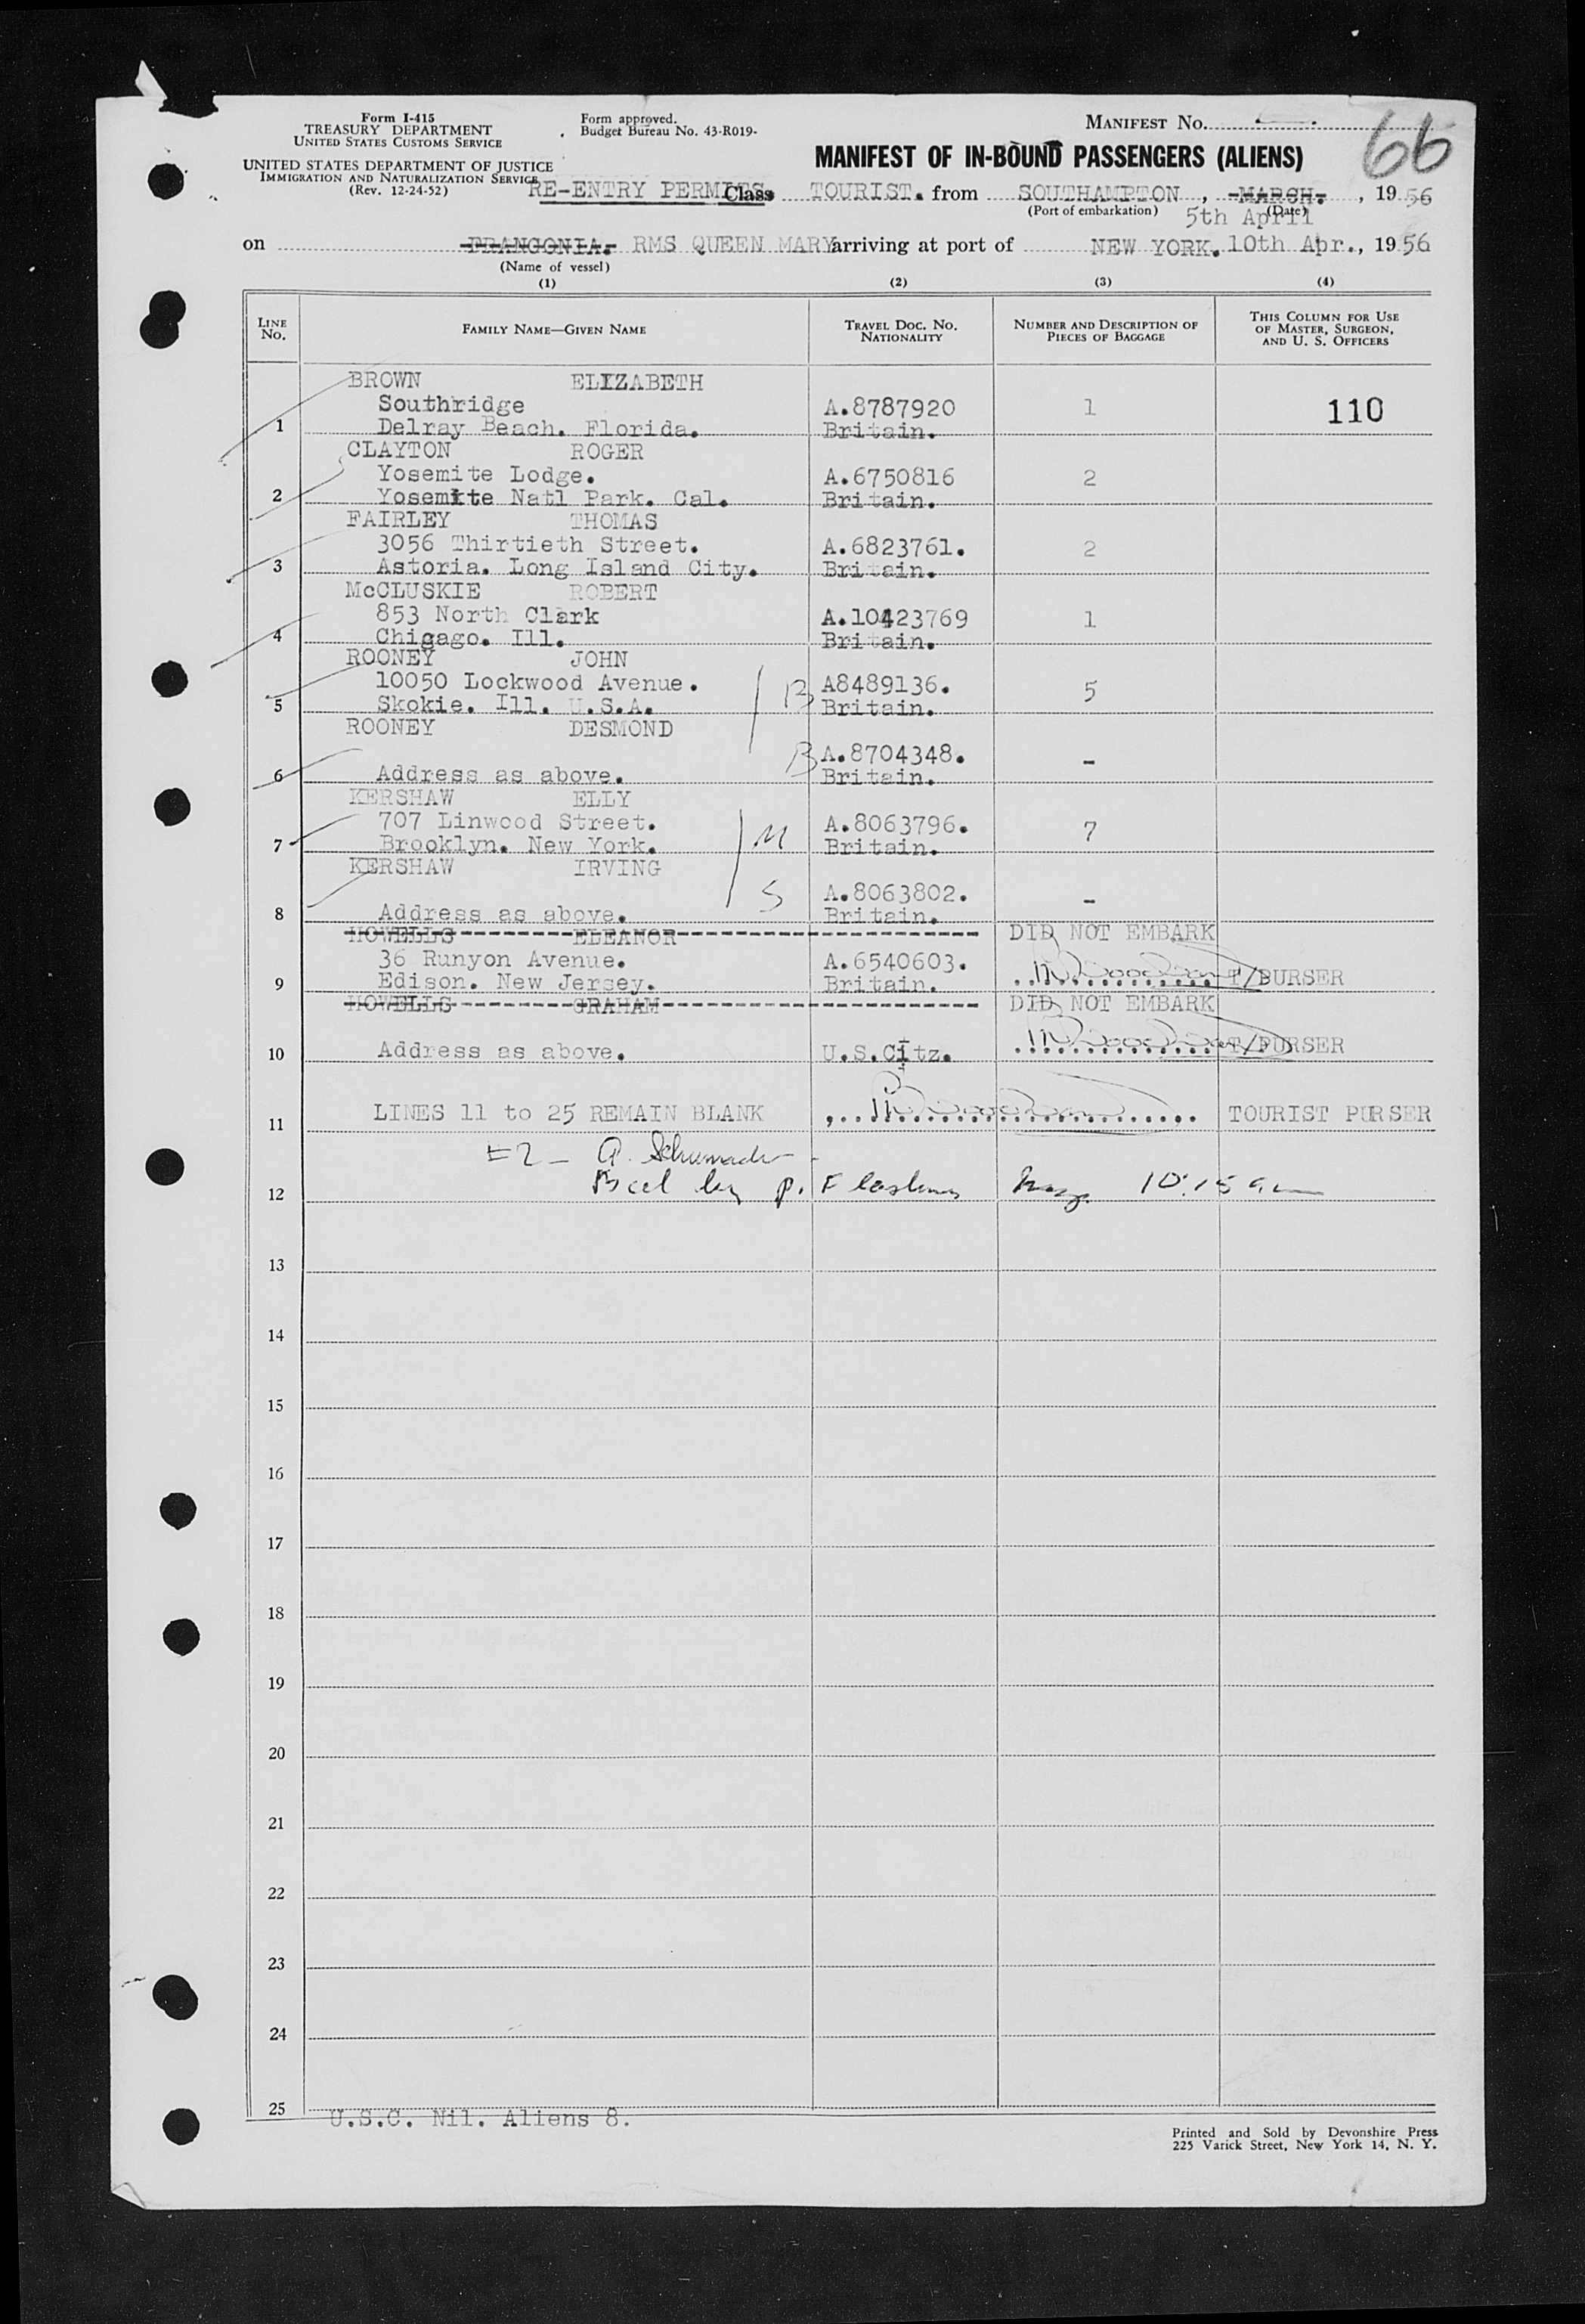 Form I-415
TREASURY DEPARTMENT
UNITED STATES CUSTOMS SERVICE
UNITED STATES DEPARTMENT OF JUSTICE
IMMIGRATION AND NATURALIZATION SERVICE
(Rev. 12-24-52)
Form approved.
Budget Bureau No. 43-R019-
MANIFEST NO.
66
MANIFEST OF IN-BOUND PASSENGERS (ALIENS)
RE-ENTRY PERMITS. Class TOURIST. from SOUTHAMPTON, MARCH. , 1956
(Port of embarkation) (Date)
5th April
on FRANCONIA. RMS QUEEN MARY arriving at port of NEW YORK. 10th Apr., 1956
(Name of vessel)
(1) (2) (3) (4)
LINE NO. FAMILY NAME—GIVEN NAME TRAVEL DOC. NO. NATIONALITY NUMBER AND DESCRIPTION OF PIECES OF BAGGAGE THIS COLUMN FOR USE OF MASTER, SURGEON, AND U. S. OFFICERS
BROWN ELIZABETH
Southridge A.8787920 1 110
1 Delray Beach. Florida. Britain.
CLAYTON ROGER
Yosemite Lodge. A.6750816 2
2 Yosemite Natl Park. Cal. Britain.
FAIRLEY THOMAS
3056 Thirtieth Street. A.6823761. 2
3 Astoria. Long Island City. Britain.
McCLUSKIE ROBERT
853 North Clark A.10423769 1
4 Chigago. Ill. Britain.
ROONEY JOHN
10050 Lockwood Avenue. B A8489136. 5
5 Skokie. Ill. U.S.A. Britain.
ROONEY DESMOND
B A.8704348. -
6 Address as above. Britain.
KERSHAW ELLY
707 Linwood Street. M A.8063796. 7
7 Brooklyn. New York. Britain.
KERSHAW IRVING
S A.8063802. -
8 Address as above. Britain.
HOWELLS ELEANOR DID NOT EMBARK
36 Runyon Avenue. A.6540603.
9 Edison. New Jersey. Britain. T/PURSER
HOWELLS GRAHAM DID NOT EMBARK
10 Address as above. U.S.Citz. T/PURSER
11 LINES 11 to 25 REMAIN BLANK TOURIST PURSER
A. Schumacher
12 by P. 10:15 am
13
14
15
16
17
18
19
20
21
22
23
24
25 U.S.C. Nil. Aliens 8.
Printed and Sold by Devonshire Press
225 Varick Street, New York 14, N. Y.